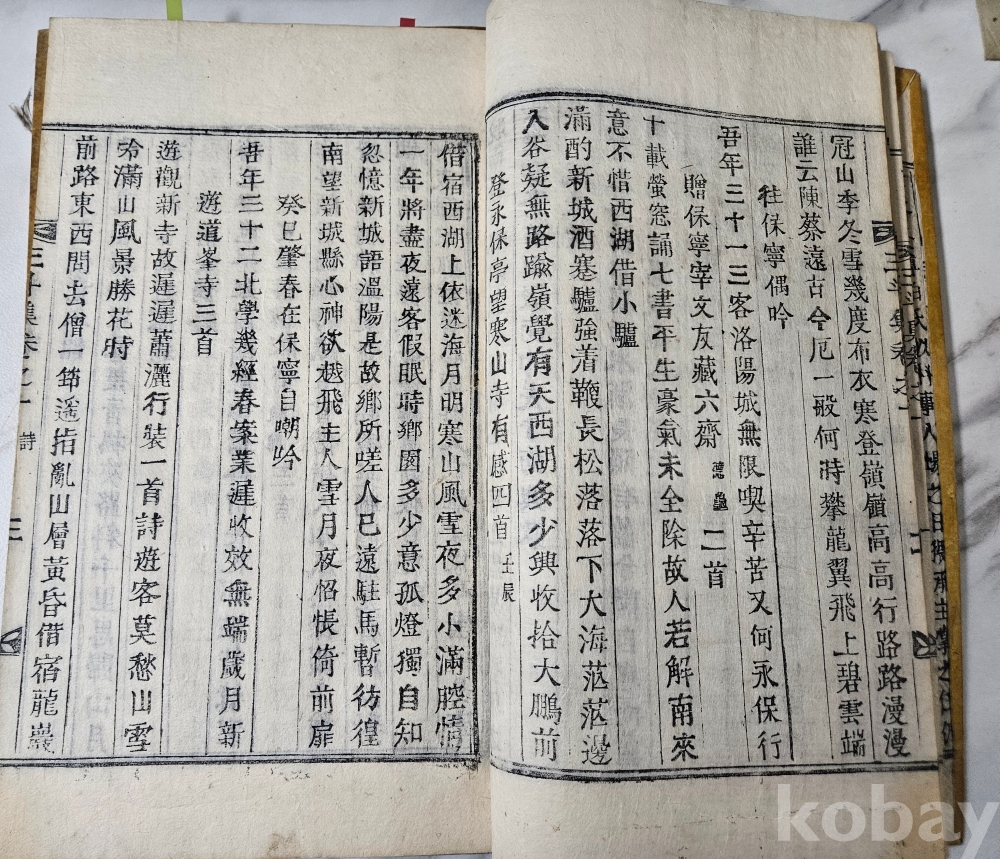 冠山季冬雪幾度布衣寒登嶺嶺高高行路路漫漫
誰云陳蔡遠古今厄一般何時攀龍翼飛上碧雲端
往保寧偶吟
吾年三十一三客洛陽城無限喫辛苦又何永保行
贈保寧宰文友藏六齋 二首
十載螢窓誦七書平生豪氣未全除故人若解南來
意不惜西湖借小驢
滿酌新城酒蹇驢強着鞭長松落落下大海茫茫邊
入谷疑無路踰嶺覺有天西湖多少興收拾大鵬前
登永保亭望寒山寺有感四首 壬辰
借宿西湖上依迷海月明寒山風雪夜多小滿腔情
一年將盡夜遠客假眠時鄉園多少意孤燈獨自知
忽憶新城語溫陽是故鄉所嗟人已遠駐馬暫彷徨
南望新城縣心神欲越飛主人雪月夜怊悵倚前扉
癸巳肇春在保寧自嘲吟
吾年三十二北學幾經春案業遲收效無端歲月新
遊道峯寺三首
遊觀新寺故遲遲蕭灑行裝一首詩遊客莫愁山雪
冷滿山風景勝花時
前路東西問去僧一筇遙指亂山層黃昏借宿龍巖
卷之一 詩 三
kobay